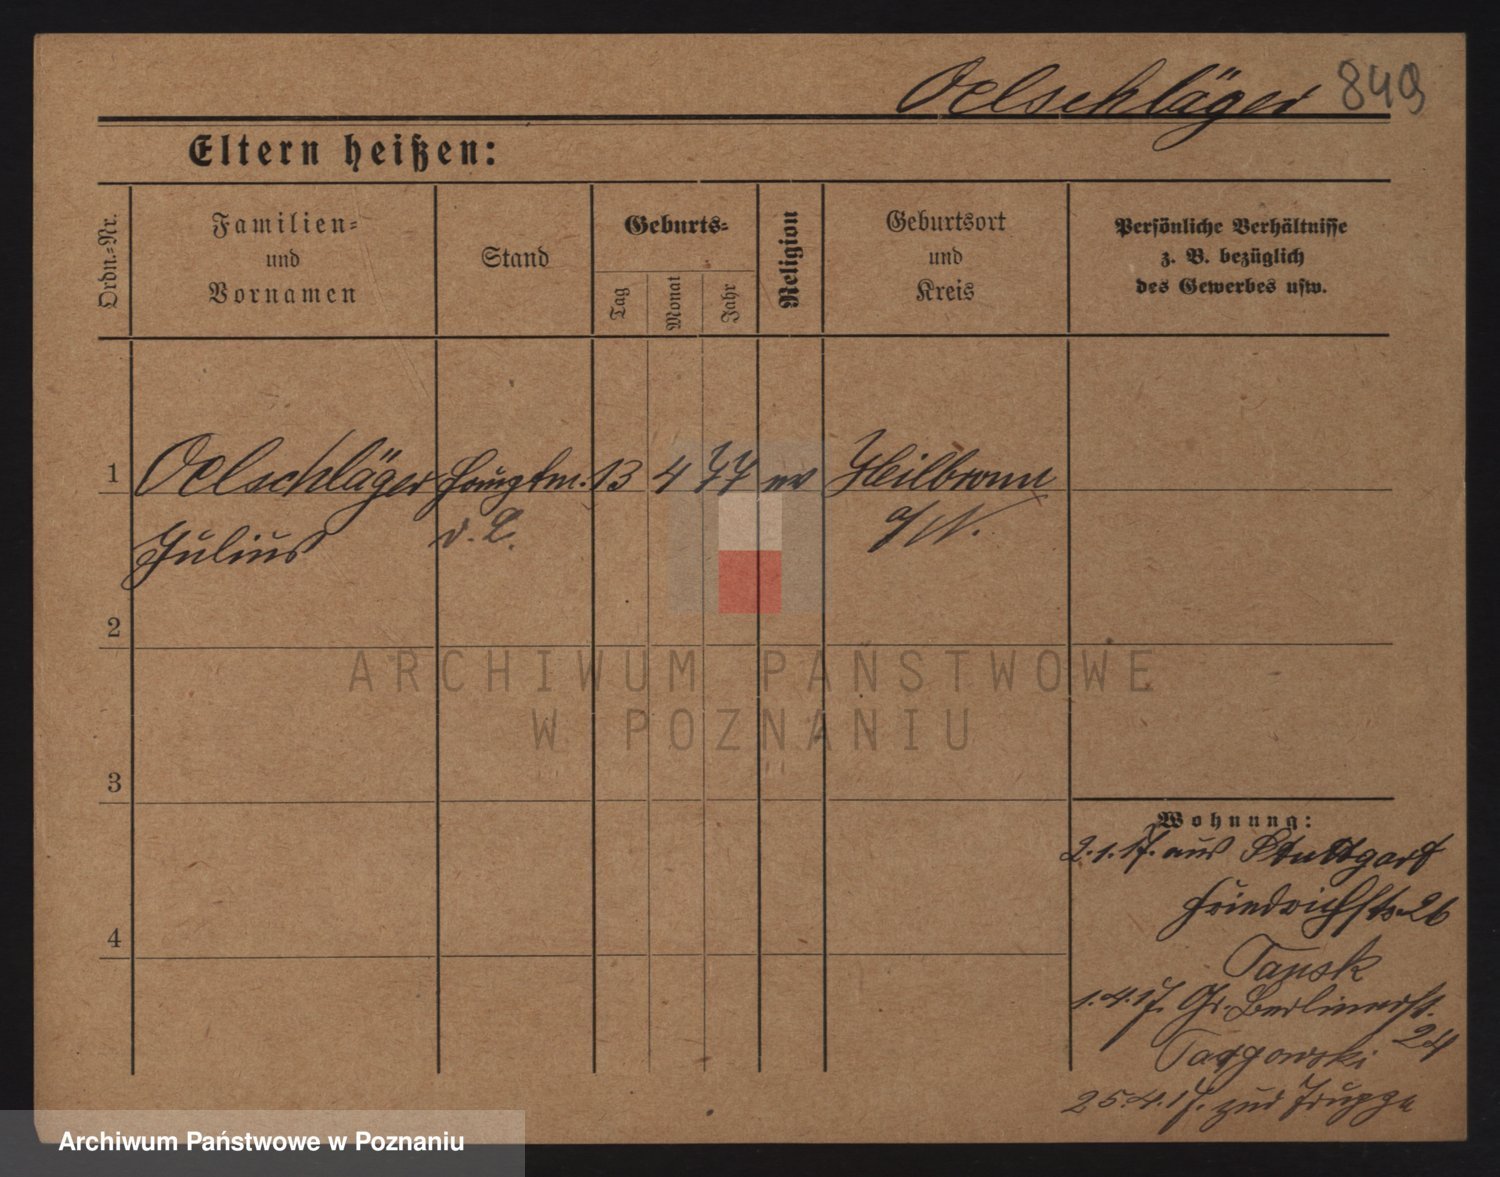 Oelschläger 849
Eltern heißen:
Ordn.-Nr.
Familien-
und
Vornamen
Stand
Geburts-
Tag
Monat
Jahr
Religion
Geburtsort
und
Kreis
Persönliche Verhältnisse
z. B. bezüglich
des Gewerbes usw.
1 Oelschläger Hauptm. 13 4 77 ev Heilbronn
Julius d. L. a/N.
2
3
4
Wohnung:
2.1.17. aus Stuttgart
Friedrichstr. 26
Tansk
1.4.17. Gr. Berlinerst.
24
Targowski
25.4.17. zur Truppe
ARCHIWUM PAŃSTWOWE
W POZNANIU
Archiwum Państwowe w Poznaniu